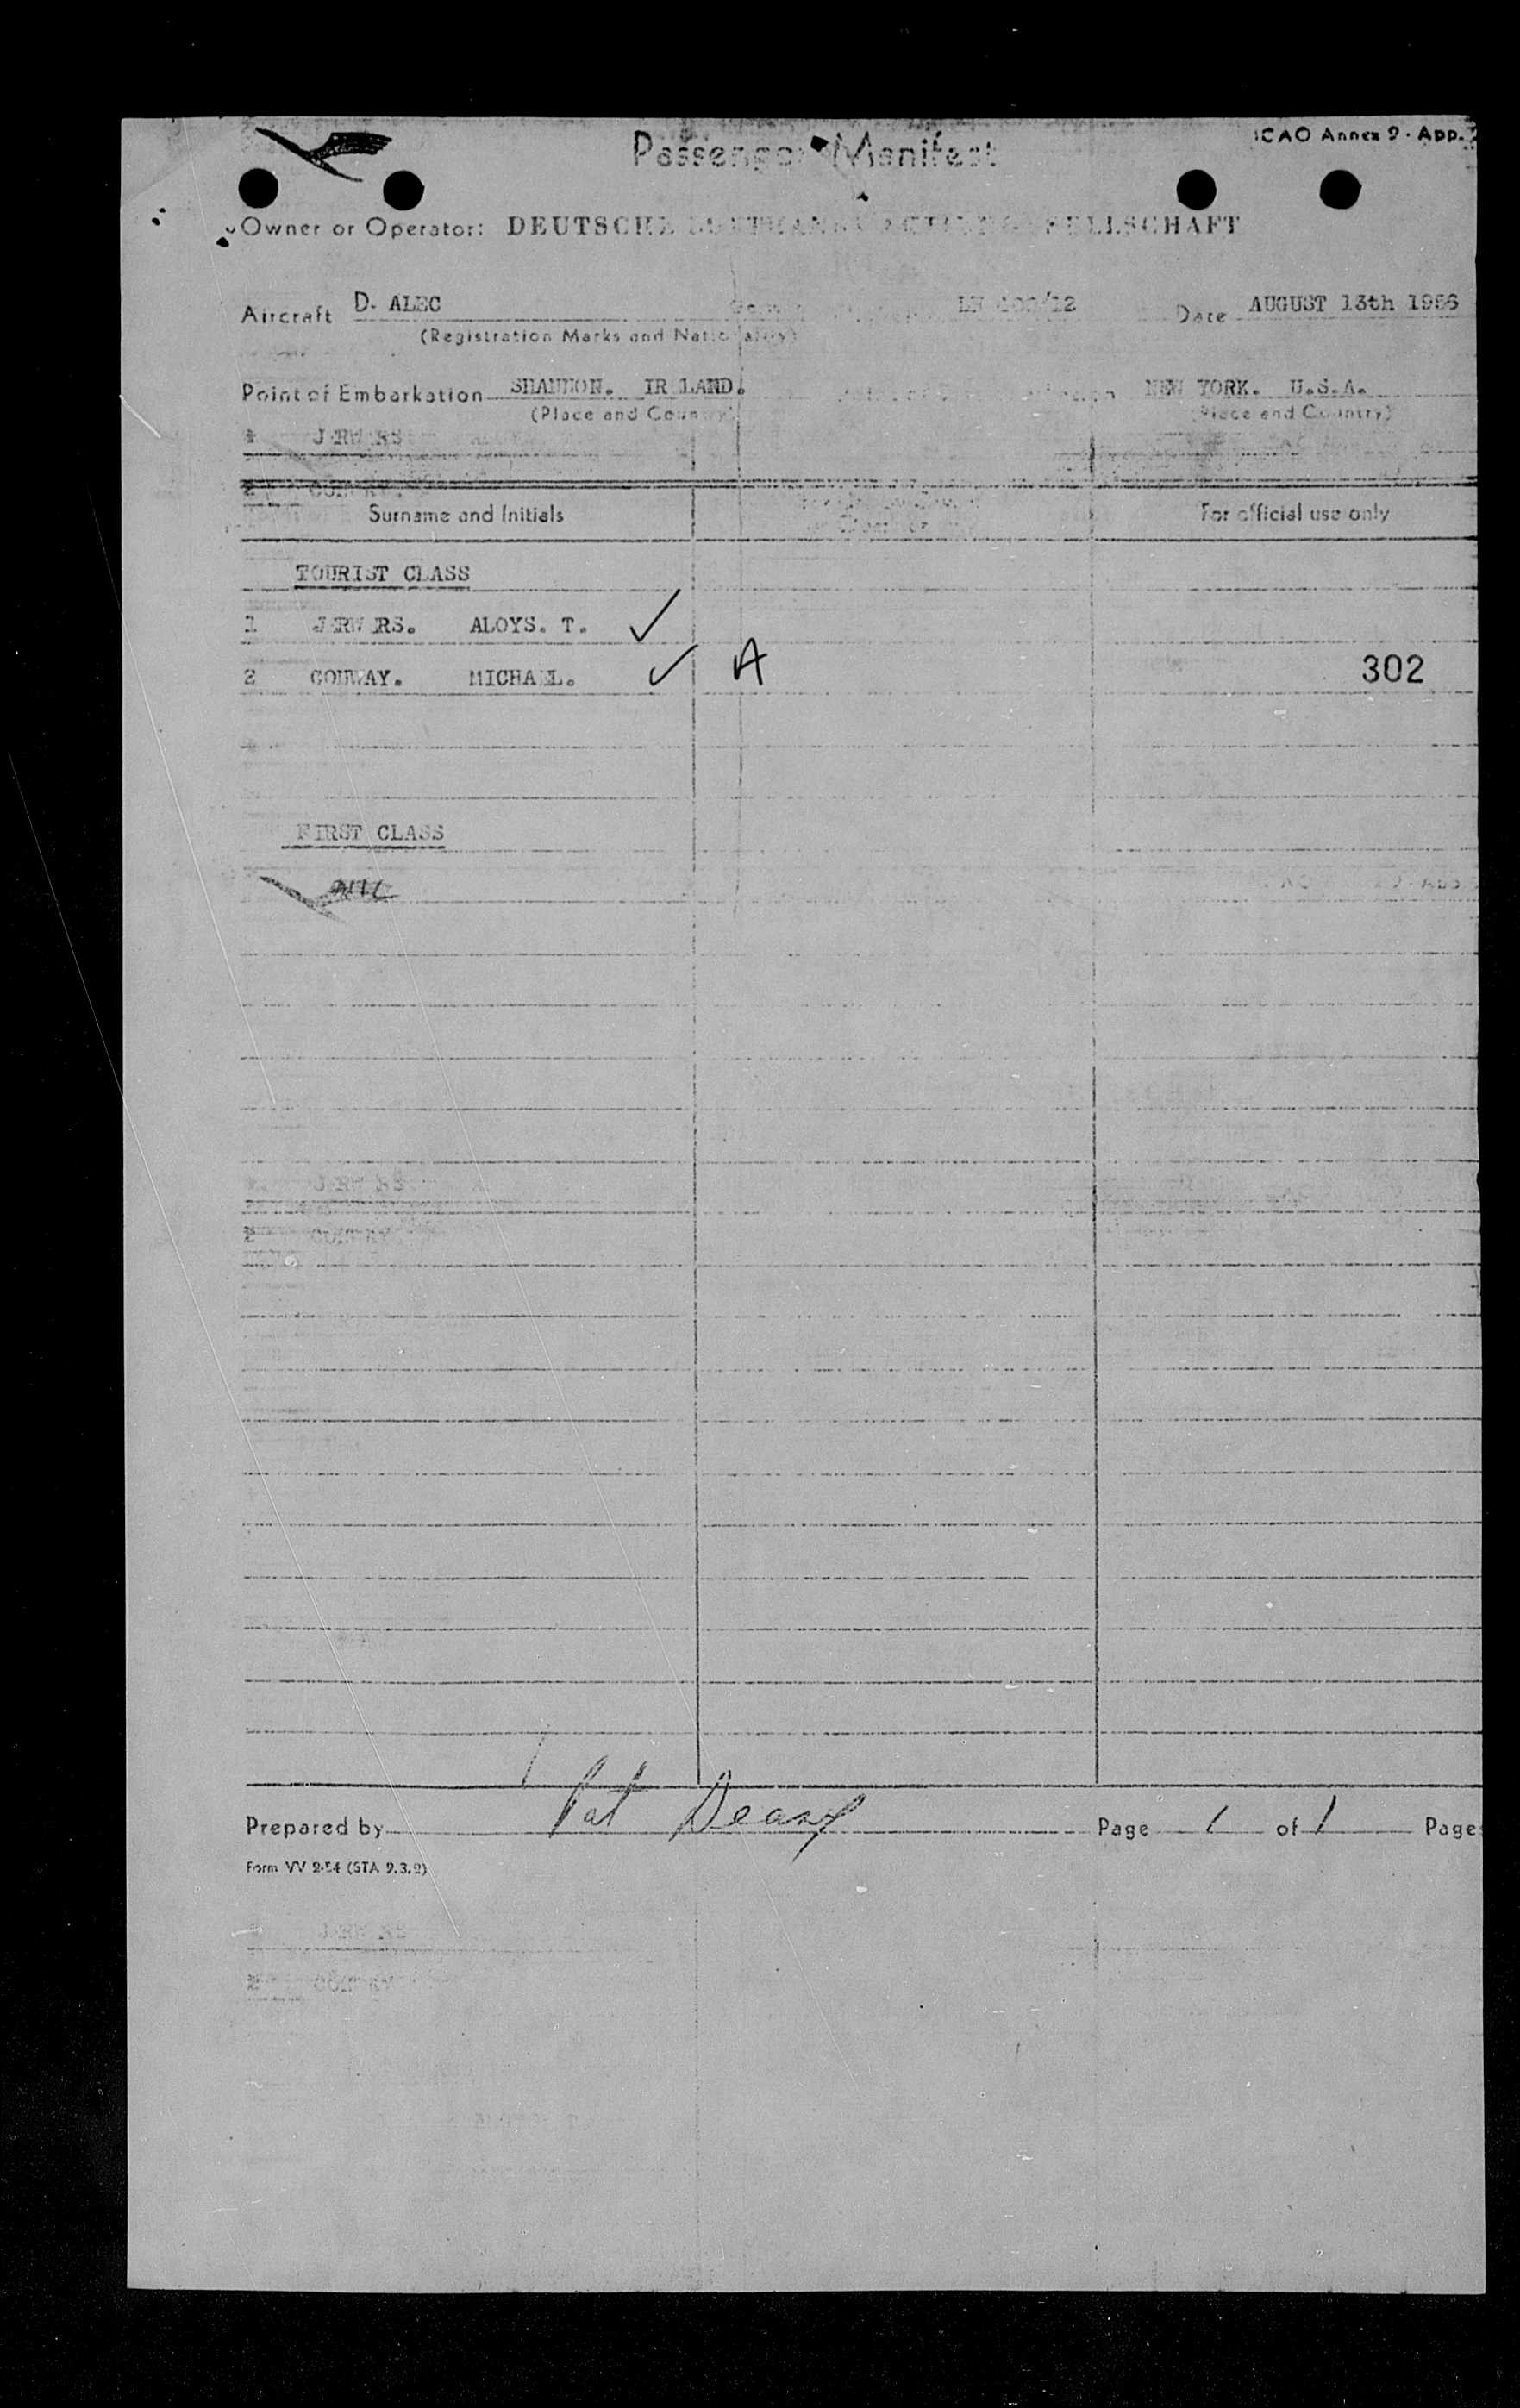 Passenger Manifest
ICAO Annex 9 · App. 2
Owner or Operator: DEUTSCHE LUFTHANSA AKTIENGESELLSCHAFT
Aircraft D- ALEC
LH 400/12
Date AUGUST 13th 1956
(Registration Marks and Nationality)
Point of Embarkation SHANNON. IRELAND.
NEW YORK. U.S.A.
(Place and Country)
(Place and Country)
Surname and Initials
For official use only
TOURIST CLASS
1 ALOYS. T. ✓
2 CONWAY. MICHAEL. ✓ A 302
FIRST CLASS
NIL
Prepared by Pat Deasy Page 1 of 1 Pages
Form VV 2-54 (STA 9.3.2)